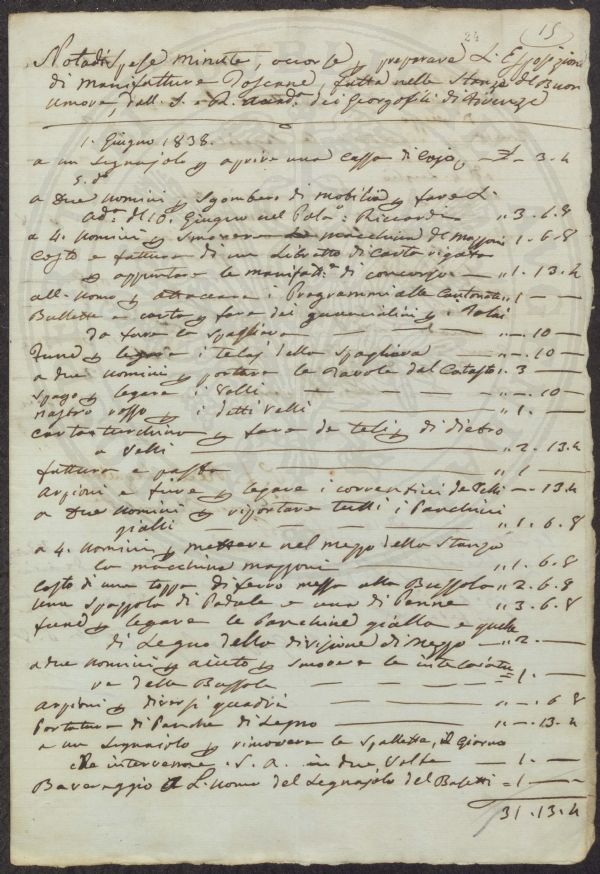 24 15
Nota di Spese minute, occorse p preparare L'Esposizione
di manifatture Toscane, fatta nelle Stanze del Buon
umore, dall' I. e R. Accad.a dei Georgofili di Firenze
1. Giugno 1838.
a un Legnajolo p aprire una Cassa di Cojo — £ 3. 4
5. do
a due uomini p Sgombero di mobilia p fare L'
Ad.a del 10. Giugno nel Pala.o Riccardi „ 3. 6. 8
a 4. uomini p Smovere la macchina del Mazzoni 1. 6. 8
Costo e fattura di un Libretto di carta rigata
p appuntare le manifatt.e di concorso — „ 1. 13. 4
all' uomo p attaccare i Programmi alle Cantonate „ 1 —
Bullette e carta p fare dei guancialini p i Telai
da fare la Spagliera — — „ —. 10 —
Fune p legare i telaj della Spagliera — „ —. 10 —
a due uomini p portare le Tavole dal Catasto „. 3 —
Spago p legare i Velli — — — „ —. 10 —
nastro rosso p i detti Velli — „ 1. —
carta turchina p fare de teli p di dietro
a Velli — „ 2. 13. 4
fattura e pasta — „ 1 —
Arpioni e fune p legare i correntini de Teli — . 13. 4
a Due uomini p riportare tutti i Panchini
gialli — „ 1. 6. 8
a 4. uomini p mettere nel mezzo della Stanza
la macchina Mazzoni — „ 1. 6. 8
Costo di una toppa di ferro messa alla Bussola „ 2. 6. 8
una Spazzola di Padule e una di Penne „ 3. 6. 8
fune p legare le Panchine gialle e quelle
di Legno della divisione di mezzo — „ 2. —
a due uomini p ajuto p smovere le intelaiatu
re delle Bussole — — — = 1. —
Arpioni p diversi quadri — — „ —. 6. 8
Portatura di Panche di Legno — „ —. 13. 4
a un Legnajolo p rimovere le Spallette, il Giorno
che intervenne S. A. in due Volte — 1. —
Beveraggio a L'uomo del Legnajolo del Basetti = 1. —
31. 13. 4